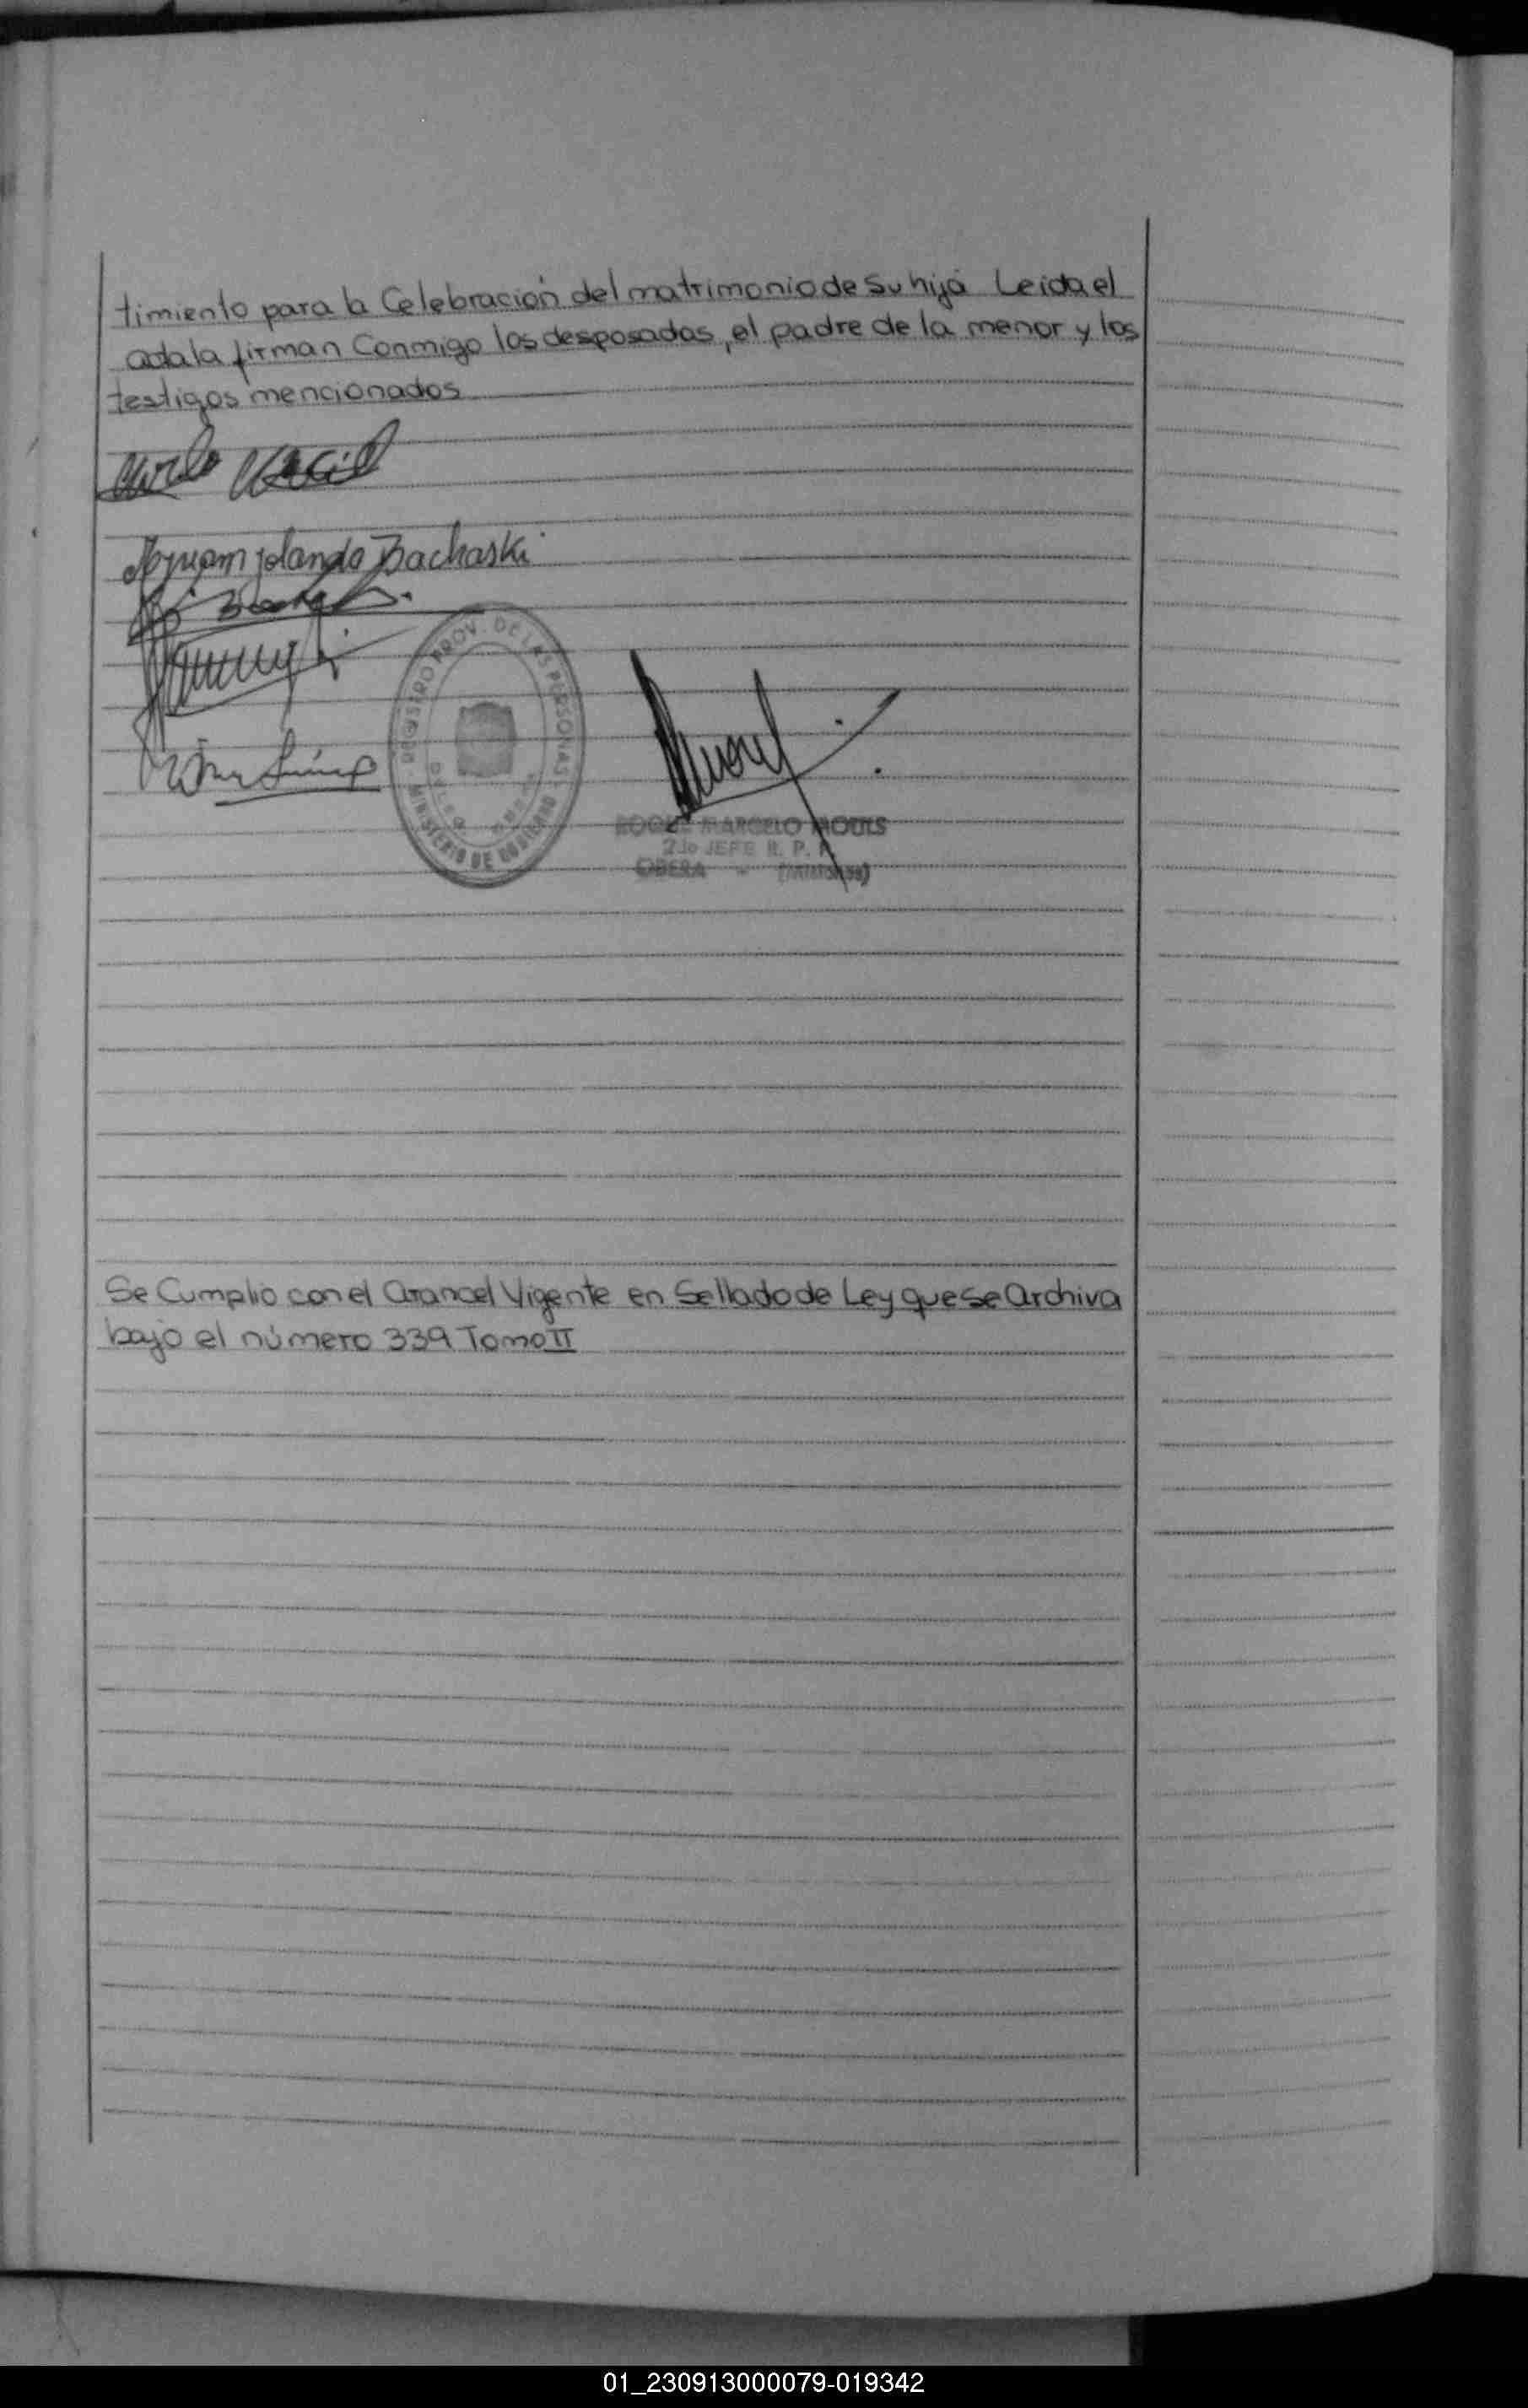 timiento para la Celebración del matrimonio de su hija Leida el
acta la firman Conmigo los desposados, el padre de la menor y los
testigos mencionados
Myriam Iolanda Bachaski
REGISTRO PROV. DE LAS PERSONAS
MINISTERIO DE GOBIERNO
ROQUE MARCELO MOULS
2do JEFE R. P. P.
OBERA - (Misiones)
Se Cumplio con el Arancel Vigente en Sellado de Ley que se Archiva
bajo el número 339 Tomo II
01_230913000079-019342